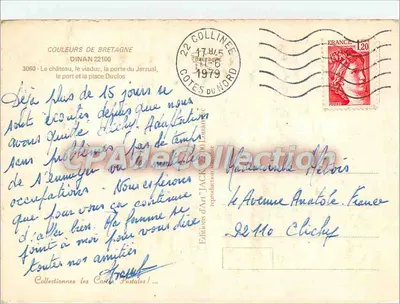 COULEURS DE BRETAGNE
DINAN 22100
3060 - Le château, le viaduc, la porte du Jerzual,
le port et la place Duclos
22 COLLINEE
17H45
11-6
1979
COTES DU NORD
FRANCE
1,20
Déjà plus de 15 jours se
sont écoulés depuis que nous
avons quitté Clichy. Adaptation
sans problèmes, pas de temps
de s'ennuyer vu la multiplicité
occupations. Nous espérons
que pour vous ça continue
d'aller bien. Ma femme se
joint à moi pour vous dire
toutes nos amitiés
CPArteCollection
Editions d'Art "JACK"
reproduction
Melois
11 Avenue Anatole France
92110 Clichy
Collectionnez les Cartes Postales !...